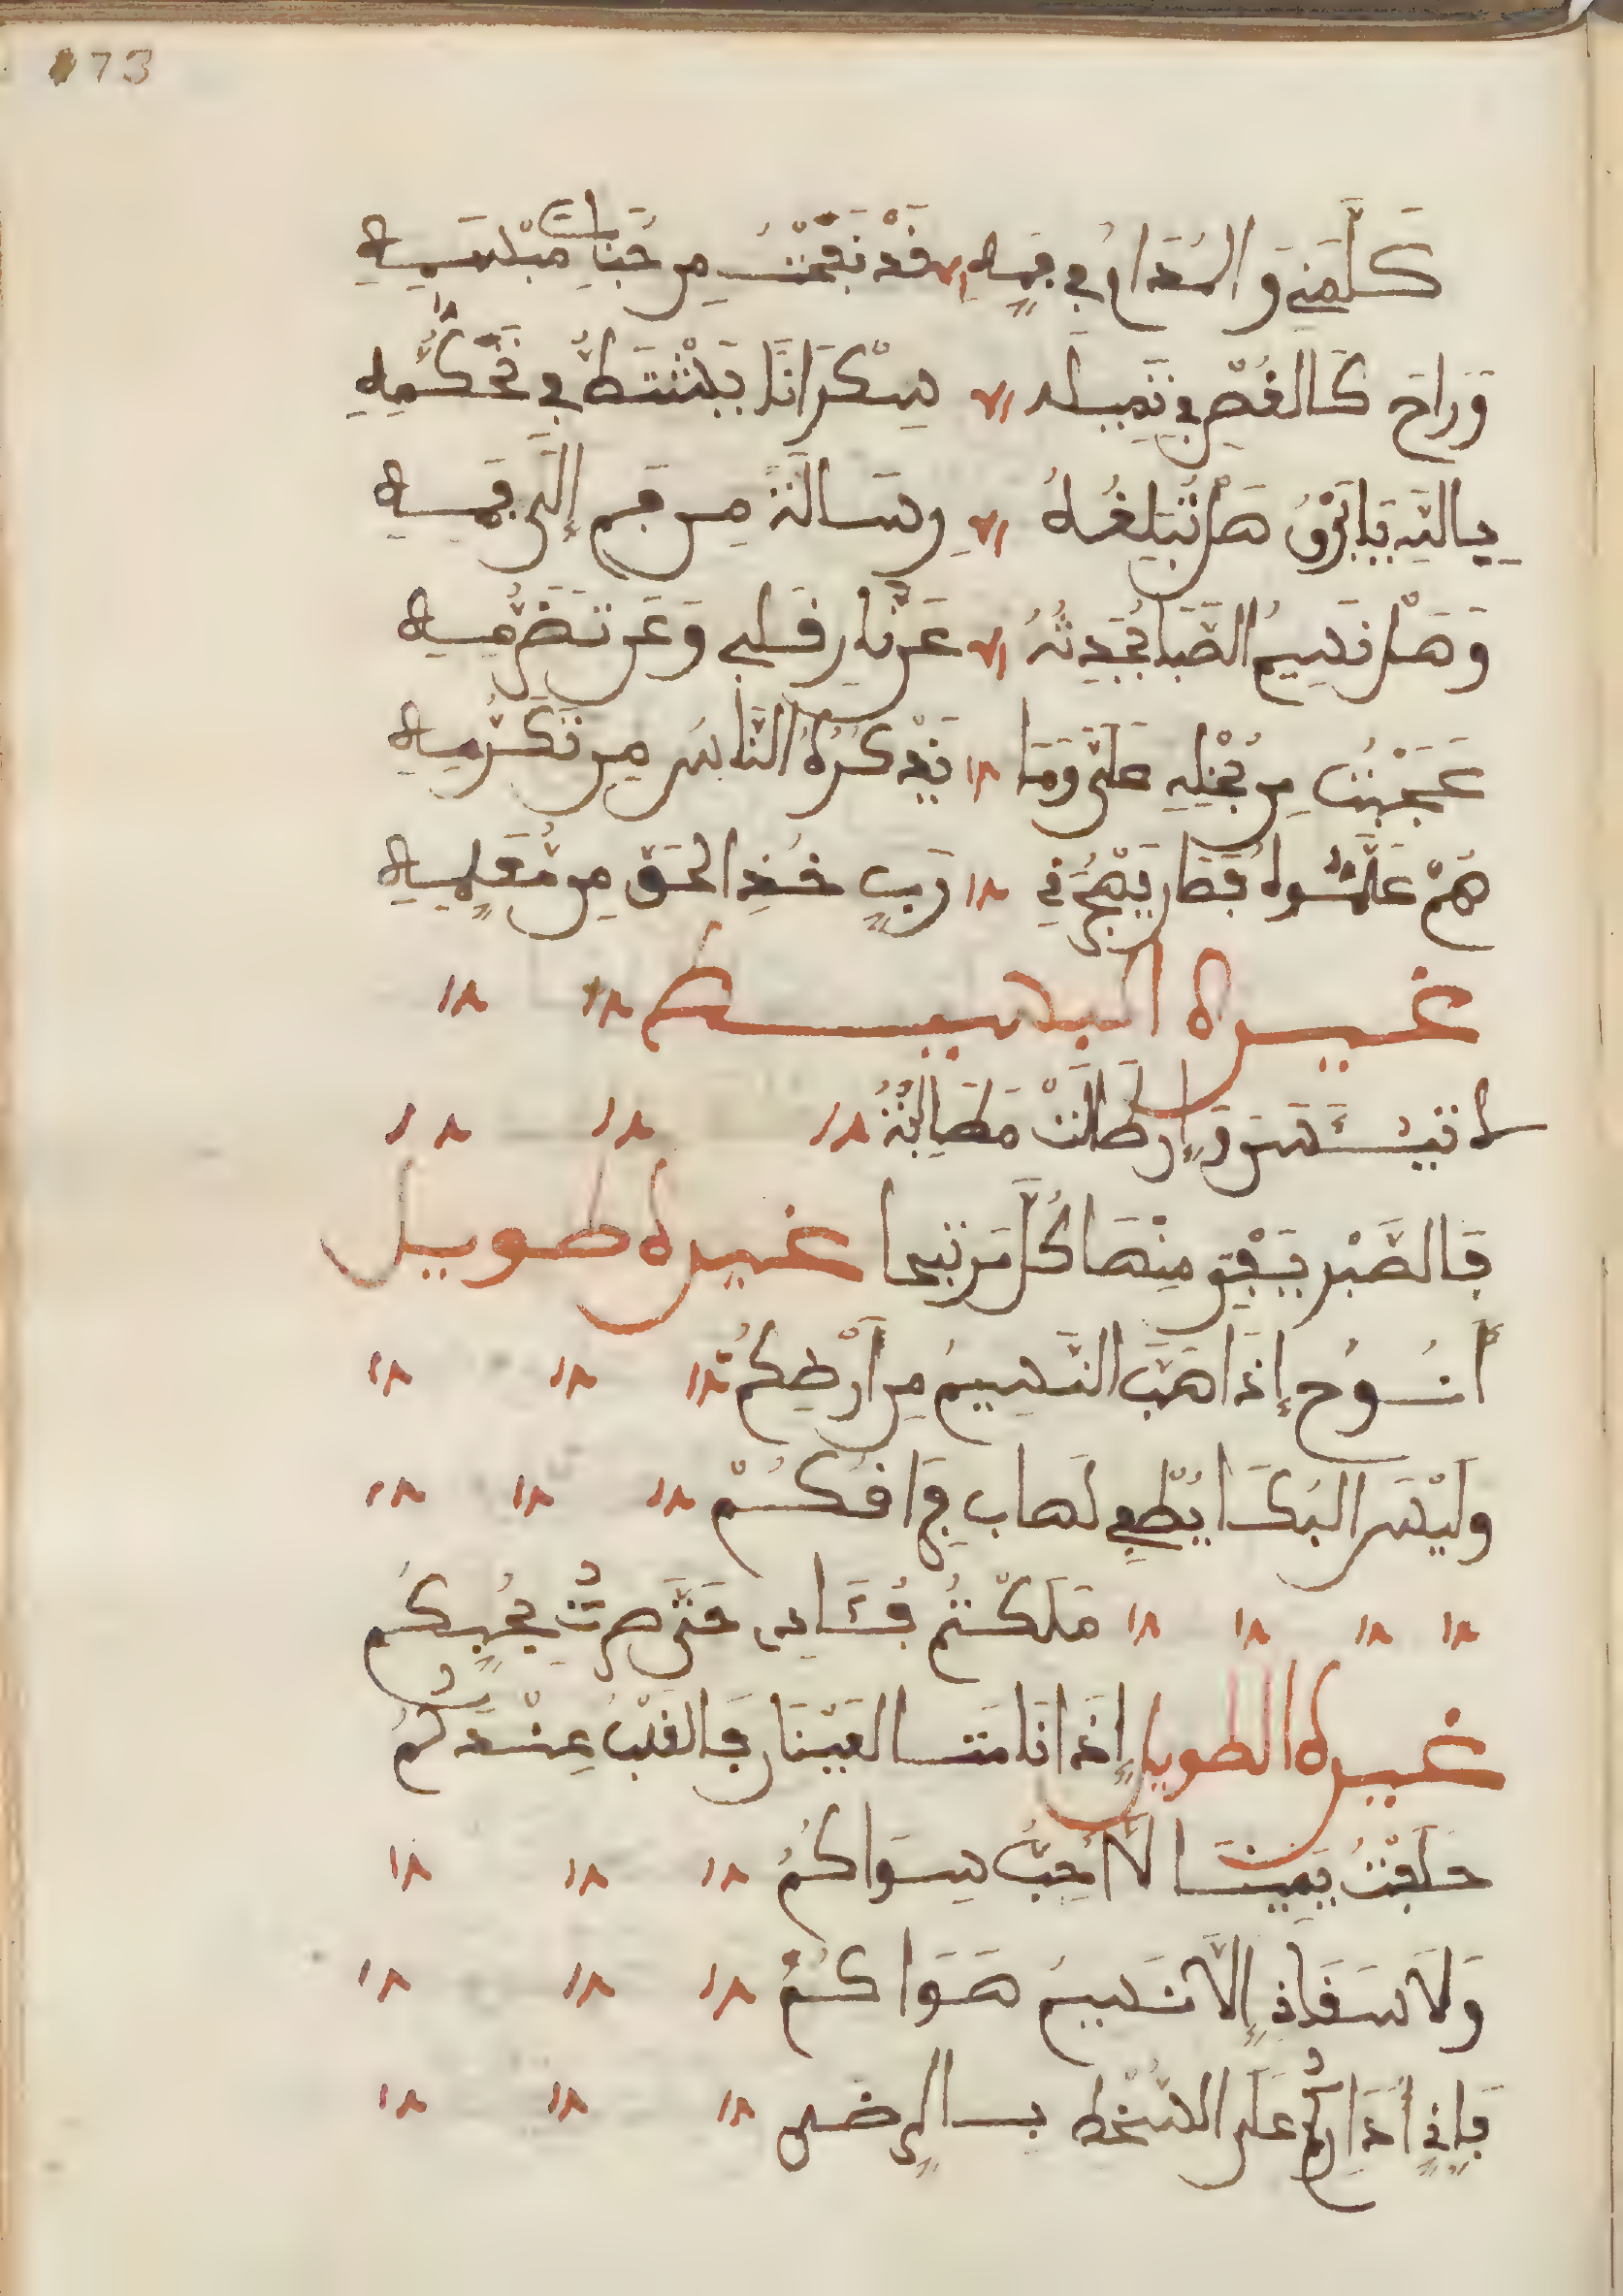 173
كَلَّمَنِي وَالمُدَامُ فِي فَمِهِ قَدْ نَفَحَتْ مِن حَبَابِ مَبْسَمِهِ
وَرَاحَ كَالغُصْنِ فِي تَمَيُّلِهِ سَكْرَانًا يَشْتَطُّ فِي تَحَكُّمِهِ
بِاللَّهِ يَا بَرْقُ هَلْ تُبَلِّغُهُ رِسَالَةً مِن فَمٍ إِلَى فَمِهِ
وَهَل نَسِيمُ الصَّبَا يُحَدِّثُهُ عَن نَّارِ قَلْبِي وَعَن تَضَرُّمِهِ
عَجِبْتُ مِن بُخْلِهِ عَلَيَّ وَمَا يَذْكُرُهُ النَّاسُ مِن تَكَرُّمِهِ
هُمْ عَلَّمُوهُ فَصَارَ يَهْجُرُنِي رَبِّ خُذِ الحَقَّ مِن مُّعَلِّمِهِ
غيره البسيط
لا تيئسن وَإِن طَالَتْ مَطَالِبُهُ
فَالصَّبْر يَفْتِق مِنْهَا كُلَّ مَرْتجا غيره طويل
أَنُوحُ إِذَا هَبَّ النَّسِيمُ مِن أَرْضِكُمْ
وَلَيْسَ البُكَا يُطْفِي لَهاب فِرَاقكُمْ
مَلَكْتُمْ فُؤَادِي حَتَّى صِرْتُ بِحُبِّكُم
غيره الطويل إِذَا نَامَت العَيْنَان فَالقَلْبُ عِنْدَكُمُ
حَلَفْتُ يَمِينًا لَا أُحِبُّ سِوَاكُمُ
وَلَا سَقَانِي إِلَّا نَسِيمُ هَوَاكُمُ
فَإِنِّي أُدَارِيكُمْ عَلَى السُّخْطِ بالرِّضَى